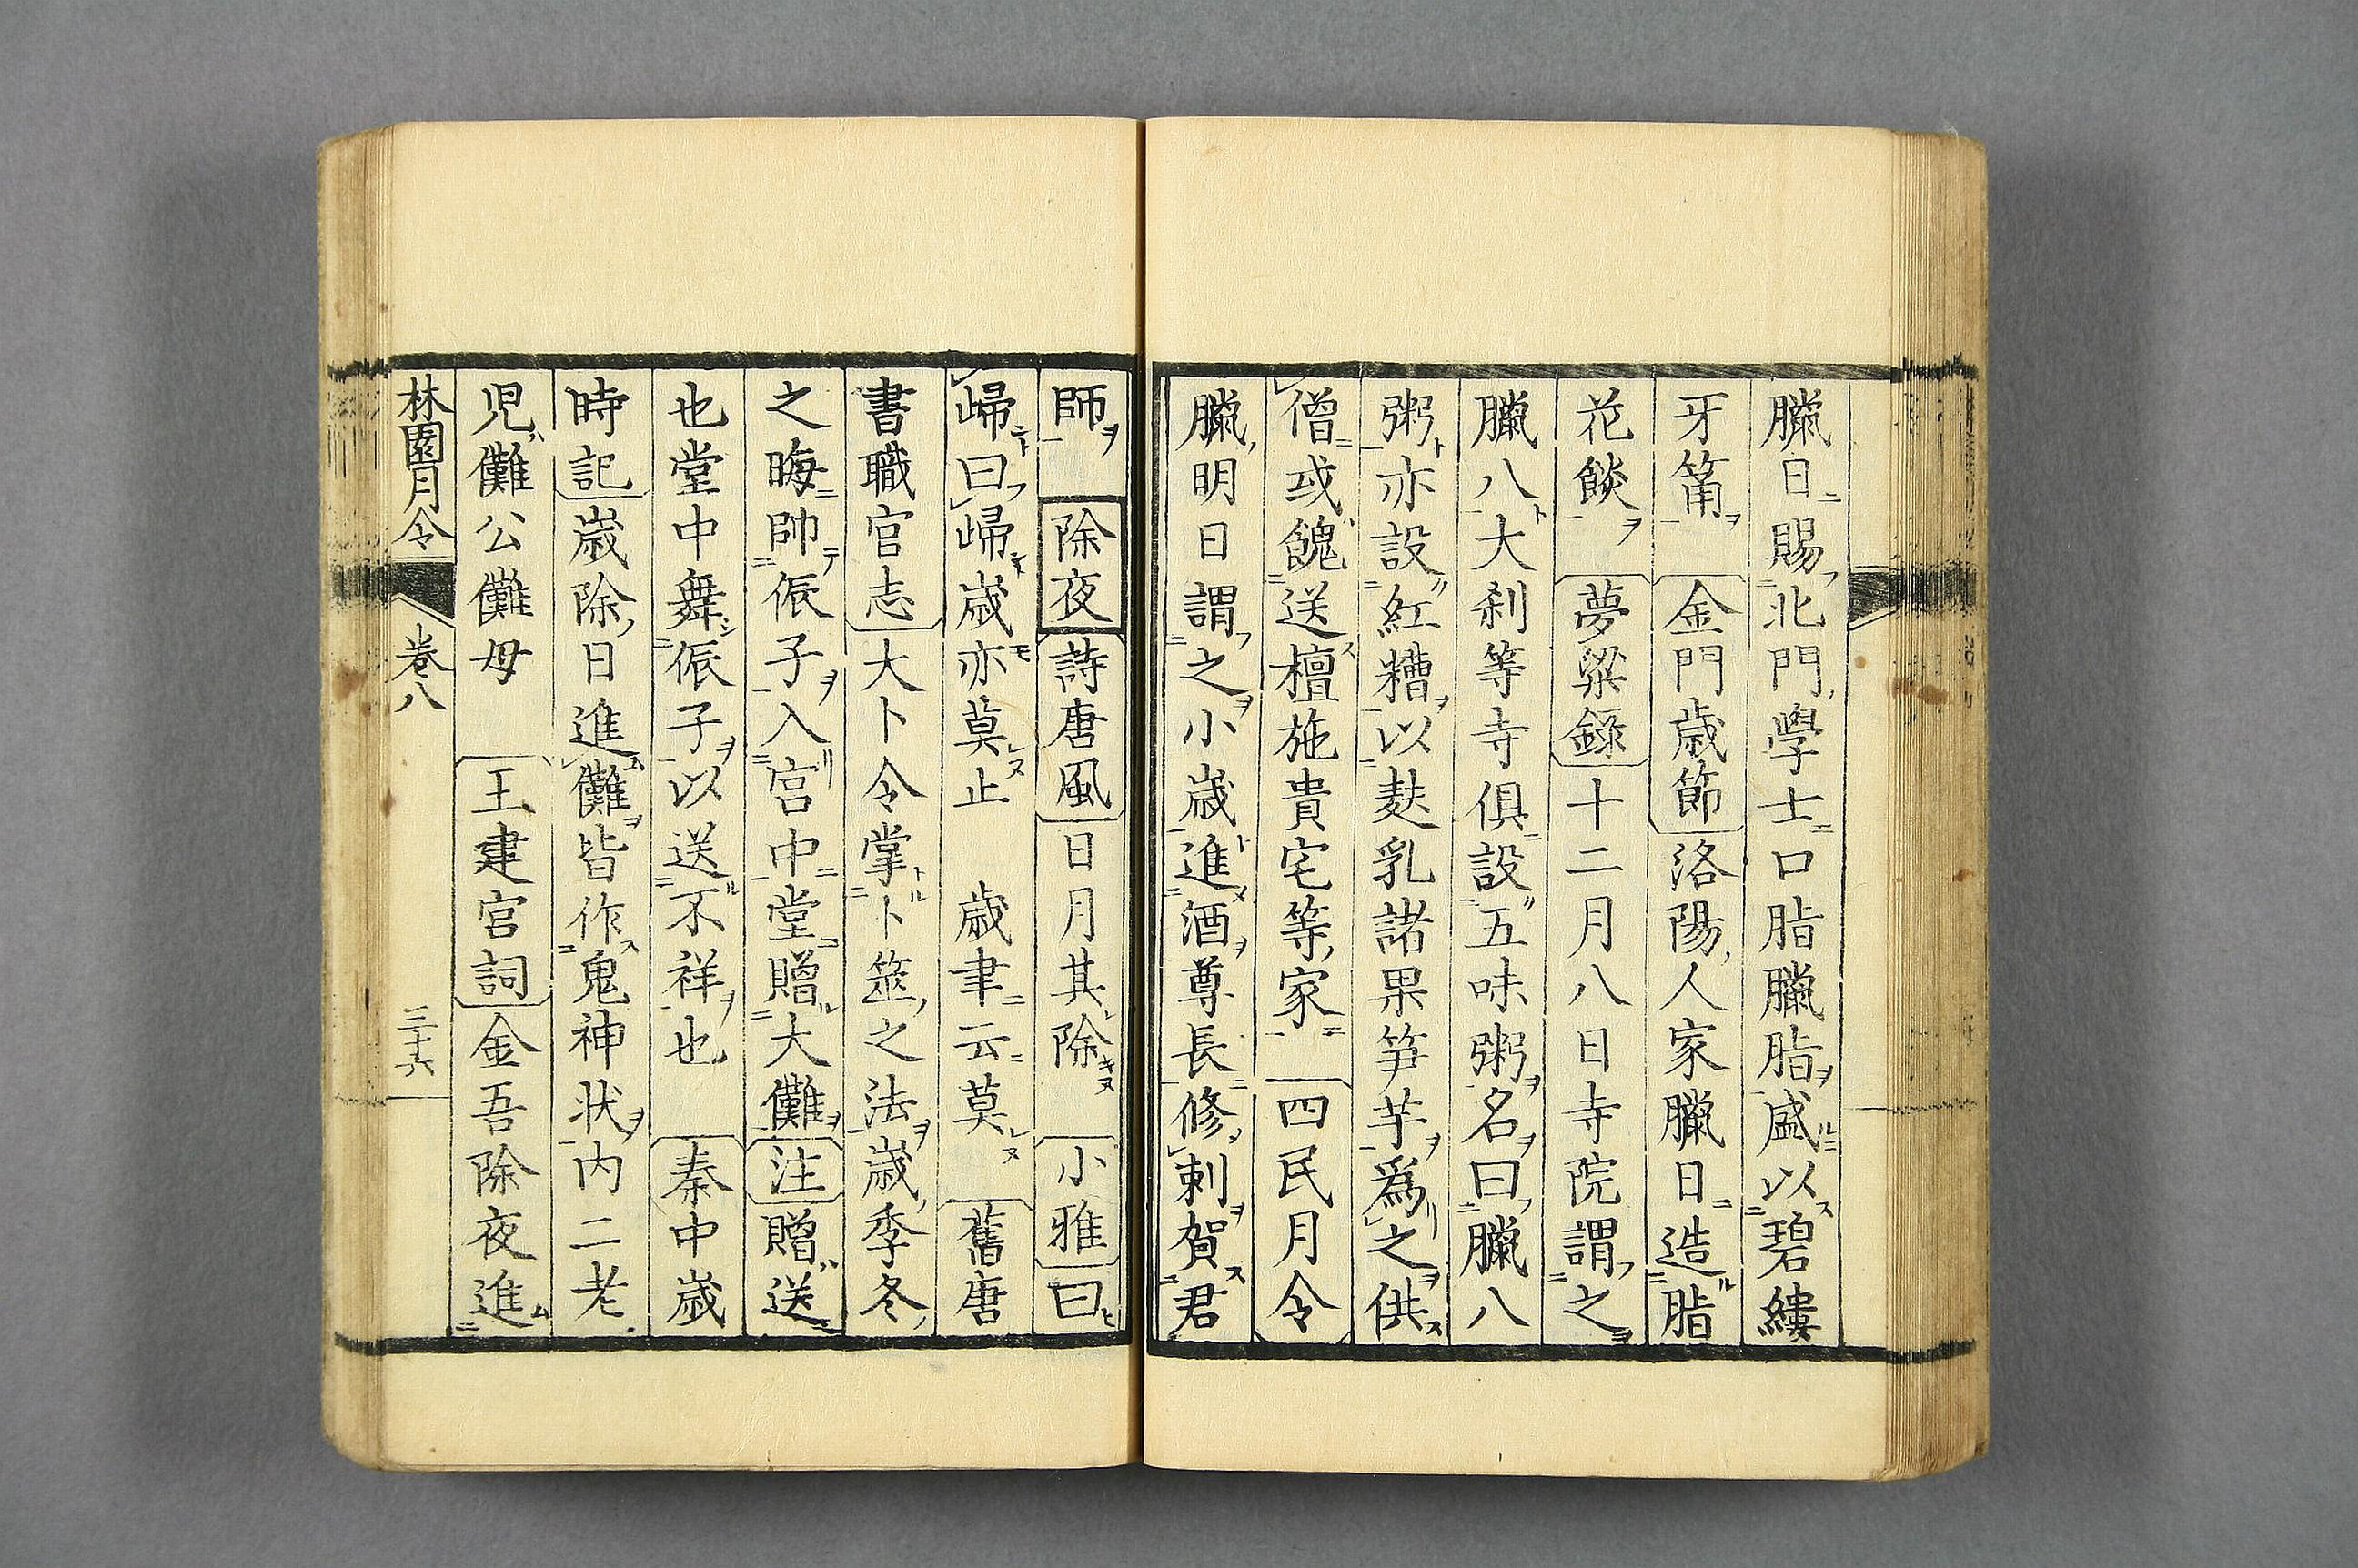 臘日賜北門學士口脂臘脂盛以碧縷
牙筩 金門歳節 洛陽人家臘日造脂
花餤 夢粱錄 十二月八日寺院謂之
臘八大刹等寺俱設五味粥名曰臘八
粥亦設紅糟以麸乳諸果笋芋爲之供
僧或餽送檀施貴宅等家 四民月令
臘明日謂之小歳進酒尊長修刺賀君
師 除夜 詩唐風 日月其除 小雅 曰
歸曰歸歳亦莫止 歳聿云莫 舊唐
書職官志 大卜令掌卜筮之法歳季冬
之晦帥侲子入宮中堂贈大儺 注 贈送
也堂中舞侲子以送不祥也 秦中歳
時記 歳除日進儺皆作鬼神状内二老
児儺公儺母 王建宮詞 金吾除夜進
林園月令 卷八 三十六